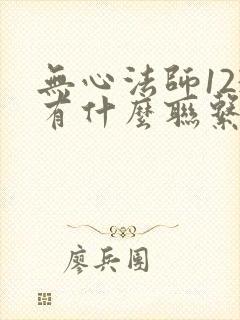 無心法師12
有什麼聯繫
廖兵團